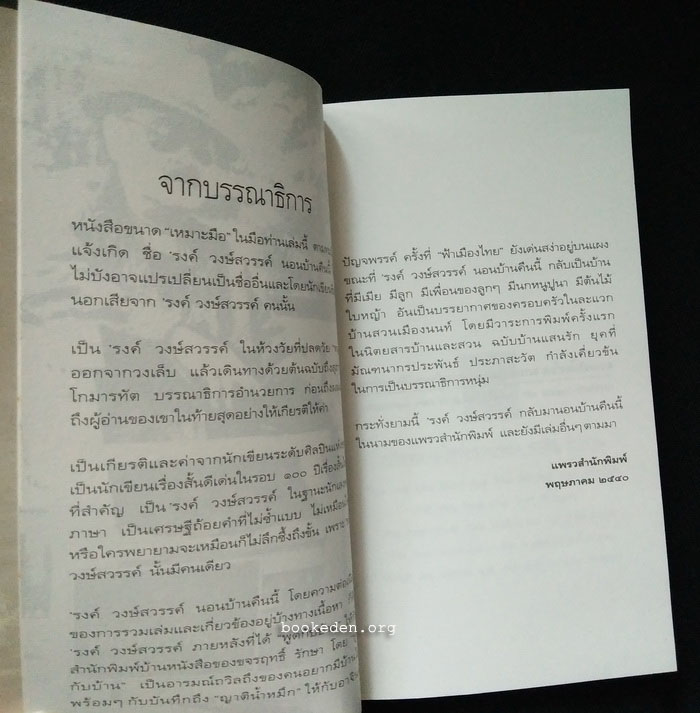 จากบรรณาธิการ
หนังสือขนาด "เหมาะมือ" ในมือท่านเล่มนี้
แจ้งเกิด ชื่อ 'รงค์ วงษ์สวรรค์ นอนบ้านคืนนี้
ไม่บังอาจแปรเปลี่ยนเป็นชื่ออื่นและโดยนักเขียน
นอกเสียจาก 'รงค์ วงษ์สวรรค์ คนนั้น
เป็น 'รงค์ วงษ์สวรรค์ ในห้วงวัยที่ปลดวัย
ออกจากวงเล็บ แล้วเดินทางด้วยต้นฉบับถึง
โกมารทัต บรรณาธิการอำนวยการ ก่อนถึง
ถึงผู้อ่านของเขาในท้ายสุดอย่างให้เกียรติให้ค่า
เป็นเกียรติและค่าจากนักเขียนระดับศิลปินแห่ง
เป็นนักเขียนเรื่องสั้นดีเด่นในรอบ ๑๐๐ ปีเรื่องสั้น
ที่สำคัญ เป็น 'รงค์ วงษ์สวรรค์ ในฐานะนัก
ภาษา เป็นเศรษฐีถ้อยคำที่ไม่ซ้ำแบบ ไม่เหมือน
หรือใครพยายามจะเหมือนก็ไม่ลึกซึ้งถึงขั้น เพราะ
วงษ์สวรรค์ นั้นมีคนเดียว
'รงค์ วงษ์สวรรค์ นอนบ้านคืนนี้ โดยความ
ของการรวมเล่มและเกี่ยวข้องอยู่บ้างทางเนื้อหา
'รงค์ วงษ์สวรรค์ ภายหลังที่ได้
สำนักพิมพ์บ้านหนังสือของขจรฤทธิ์ รักษา โดย
กับบ้าน" เป็นอารมณ์ถวิลถึงของคนอยากมีบ้าน
พร้อมๆ กับบันทึกถึง "ญาติน้ำหมึก" ให้กับ
ปัญจพรรค์ ครั้งที่ "ฟ้าเมืองไทย" ยังเด่นสง่าอยู่บนแผง
ขณะที่ 'รงค์ วงษ์สวรรค์ นอนบ้านคืนนี้ กลับเป็นบ้าน
ที่มีเมีย มีลูก มีเพื่อนของลูกๆ มีนกหนูปูนา มีต้นไม้
ใบหญ้า อันเป็นบรรยากาศของครอบครัวในละแวก
บ้านสวนเมืองนนท์ โดยมีวาระการพิมพ์ครั้งแรก
ในนิตยสารบ้านและสวน ฉบับบ้านแสนรัก ยุคที่
มัณฑนากรประพันธ์ ประภาสะวัต กำลังเคี่ยวขัน
ในการเป็นบรรณาธิการหนุ่ม
กระทั่งยามนี้ 'รงค์ วงษ์สวรรค์ กลับมานอนบ้านคืนนี้
ในนามของแพรวสำนักพิมพ์ และยังมีเล่มอื่นๆ ตามมา
แพรวสำนักพิมพ์
พฤษภาคม ๒๕๔๐
bookeden.org